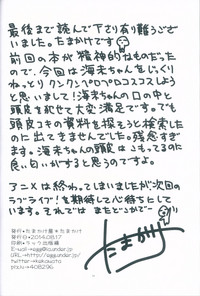 最後まで読んで下さり有り難うござ
いました。たまかけです
前回の本が精神的なものだったの
で、今回は海未ちゃんをじっくり
ねっとりクンクンペロペロコスコスしよう
と思いまして!海未ちゃんの口の中と
頭皮を犯せて大変満足です。でも
頭皮コキの資料を探そうと検索した
のに出てきませんでした。残念すぎ
ます。海未ちゃんの頭皮はこもってるのに
良い匂いがすると思うのですよ。
アニメは終わってしまいましたが次回の
ラブライブ!を期待して心待ちにして
います。それでは またどこかで
たまかけ
発行・たまかけ屋*たまかけ
発行日・2014.08.17
印刷・ラック出版様